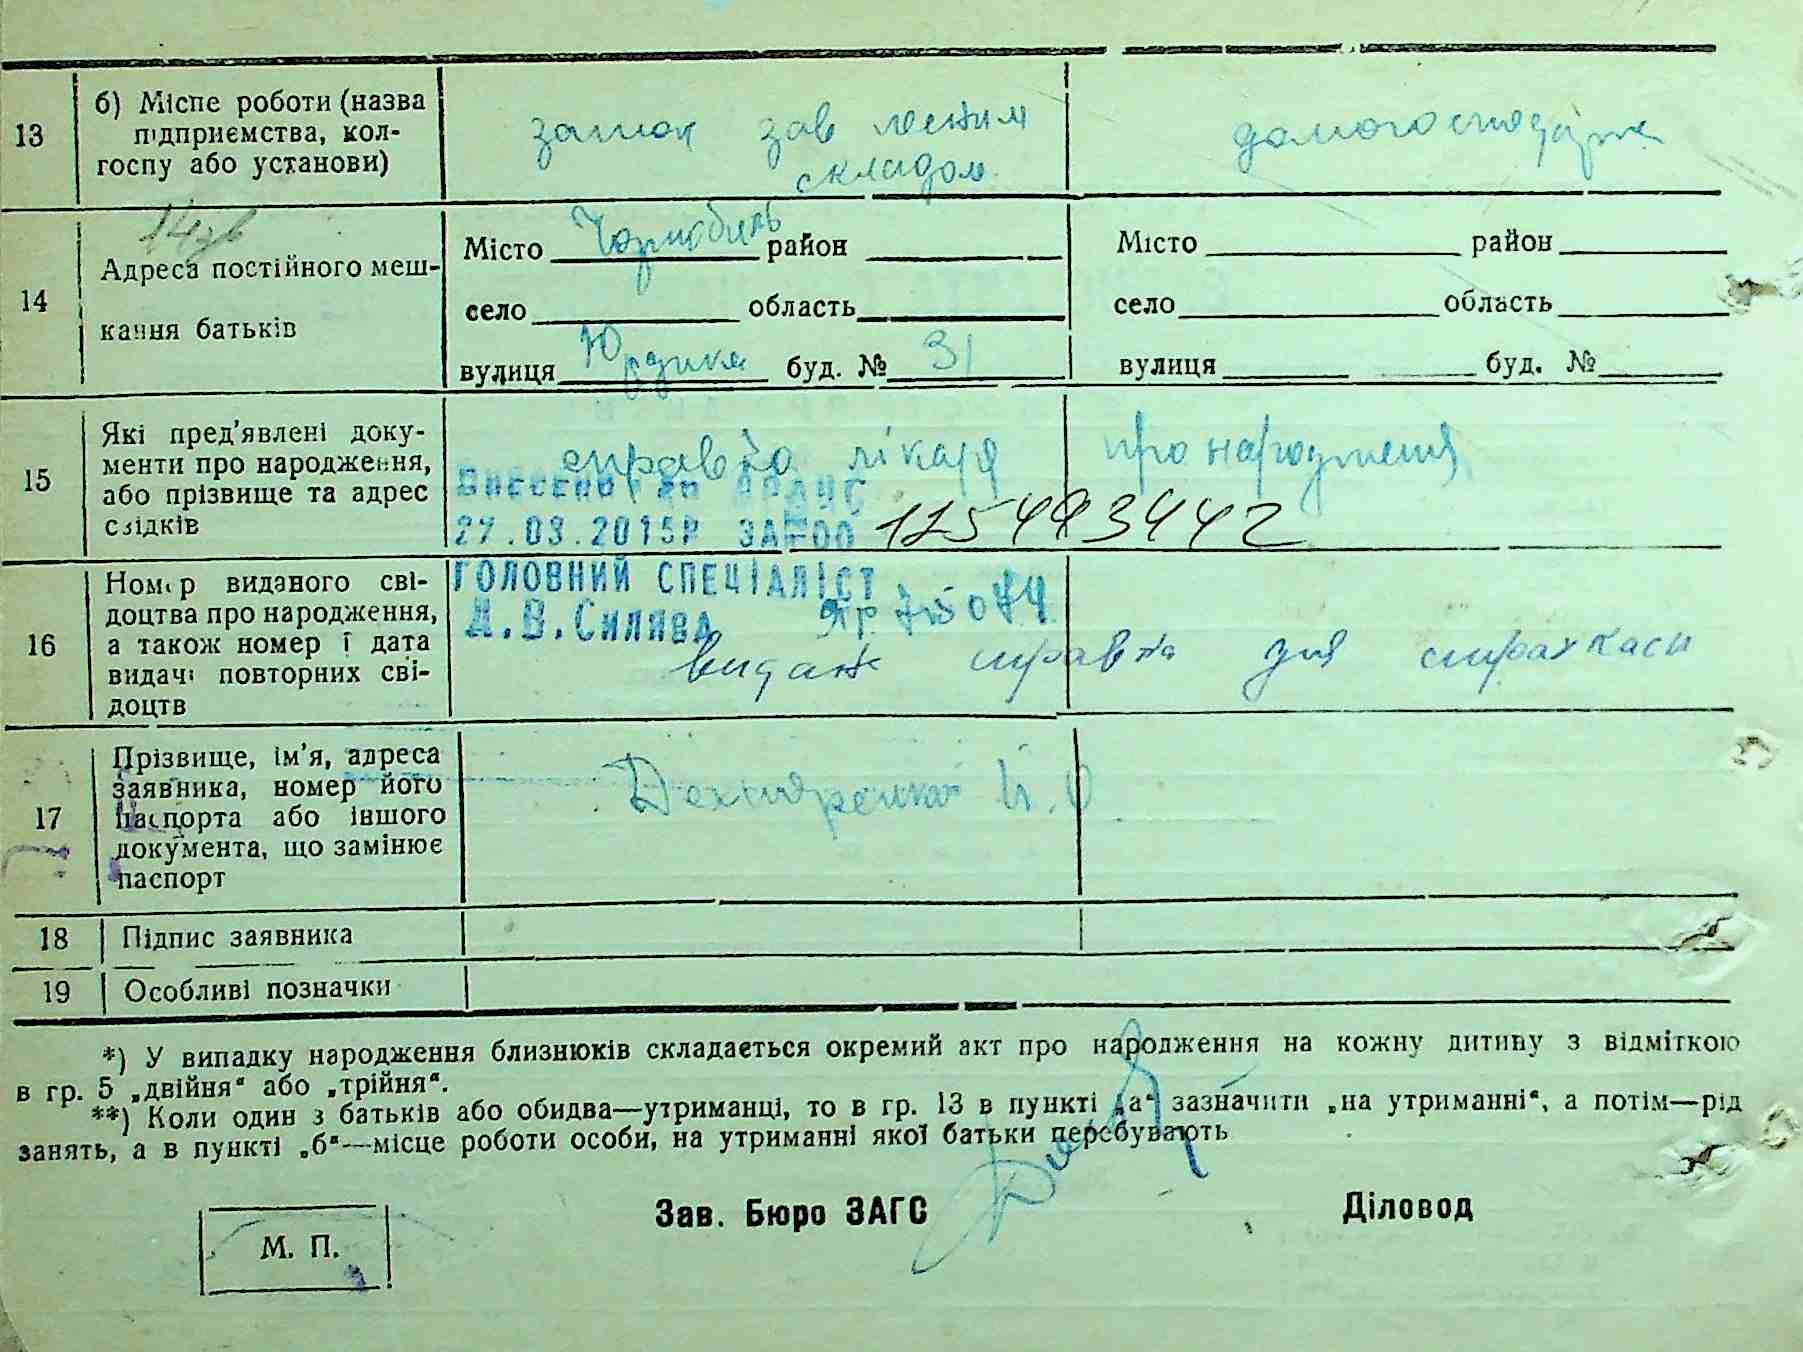 13
б) Місце роботи (назва
підприємства, кол-
госпу або установи)
зав
складом
14
Адреса постійного меш-
кання батьків
Місто Чорнобиль район
село область
вулиця буд. № 31
Місто район
село область
вулиця буд. №
15
Які пред'явлені доку-
менти про народження,
або прізвище та адрес
свідків
справка лікаря про народження
Внесено до ДРАЦС
27.03.2015Р ЗА №00
16
Номер виданого сві-
доцтва про народження,
а також номер і дата
видачі повторних сві-
доцтв
ГОЛОВНИЙ СПЕЦІАЛІСТ
видана справка для страхкаси
17
Прізвище, ім'я, адреса
заявника, номер його
паспорта або іншого
документа, що замінює
паспорт
18
Підпис заявника
19
Особливі позначки
*) У випадку народження близнюків складається окремий акт про народження на кожну дитину з відміткою
в гр. 5 „двійня“ або „трійня“.
**) Коли один з батьків або обидва—утриманці, то в гр. 13 в пункті „а“ зазначити „на утриманні“, а потім—рід
занять, а в пункті „б“—місце роботи особи, на утриманні якої батьки перебувають
Зав. Бюро ЗАГС
Діловод
М. П.